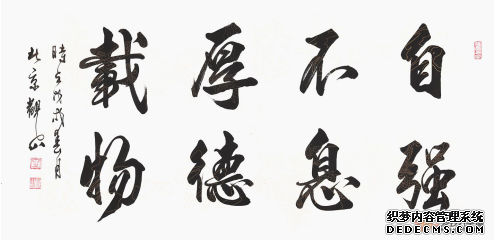 自强
不息
厚德
載物
時在戊戌春月
北京
山
织梦内容管理系统
DEDECMS.COM